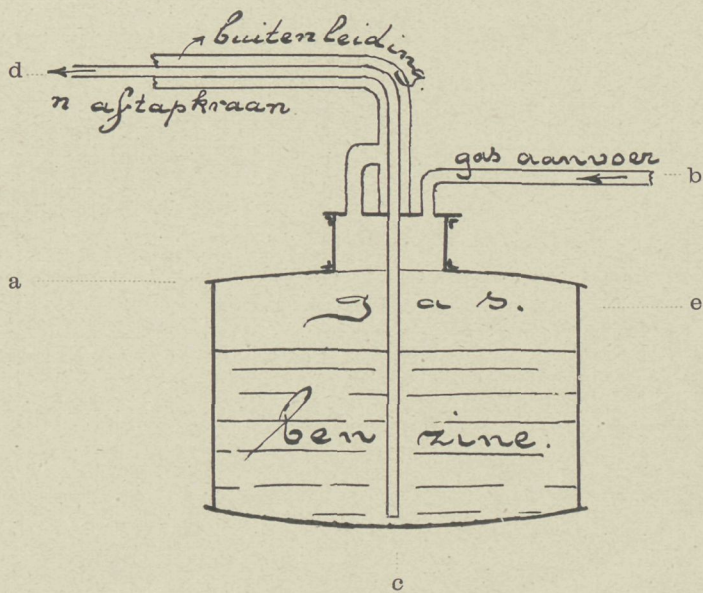 buitenleiding.
d
n aftapkraan
gas aanvoer
b
a
gas.
e
benzine.
c